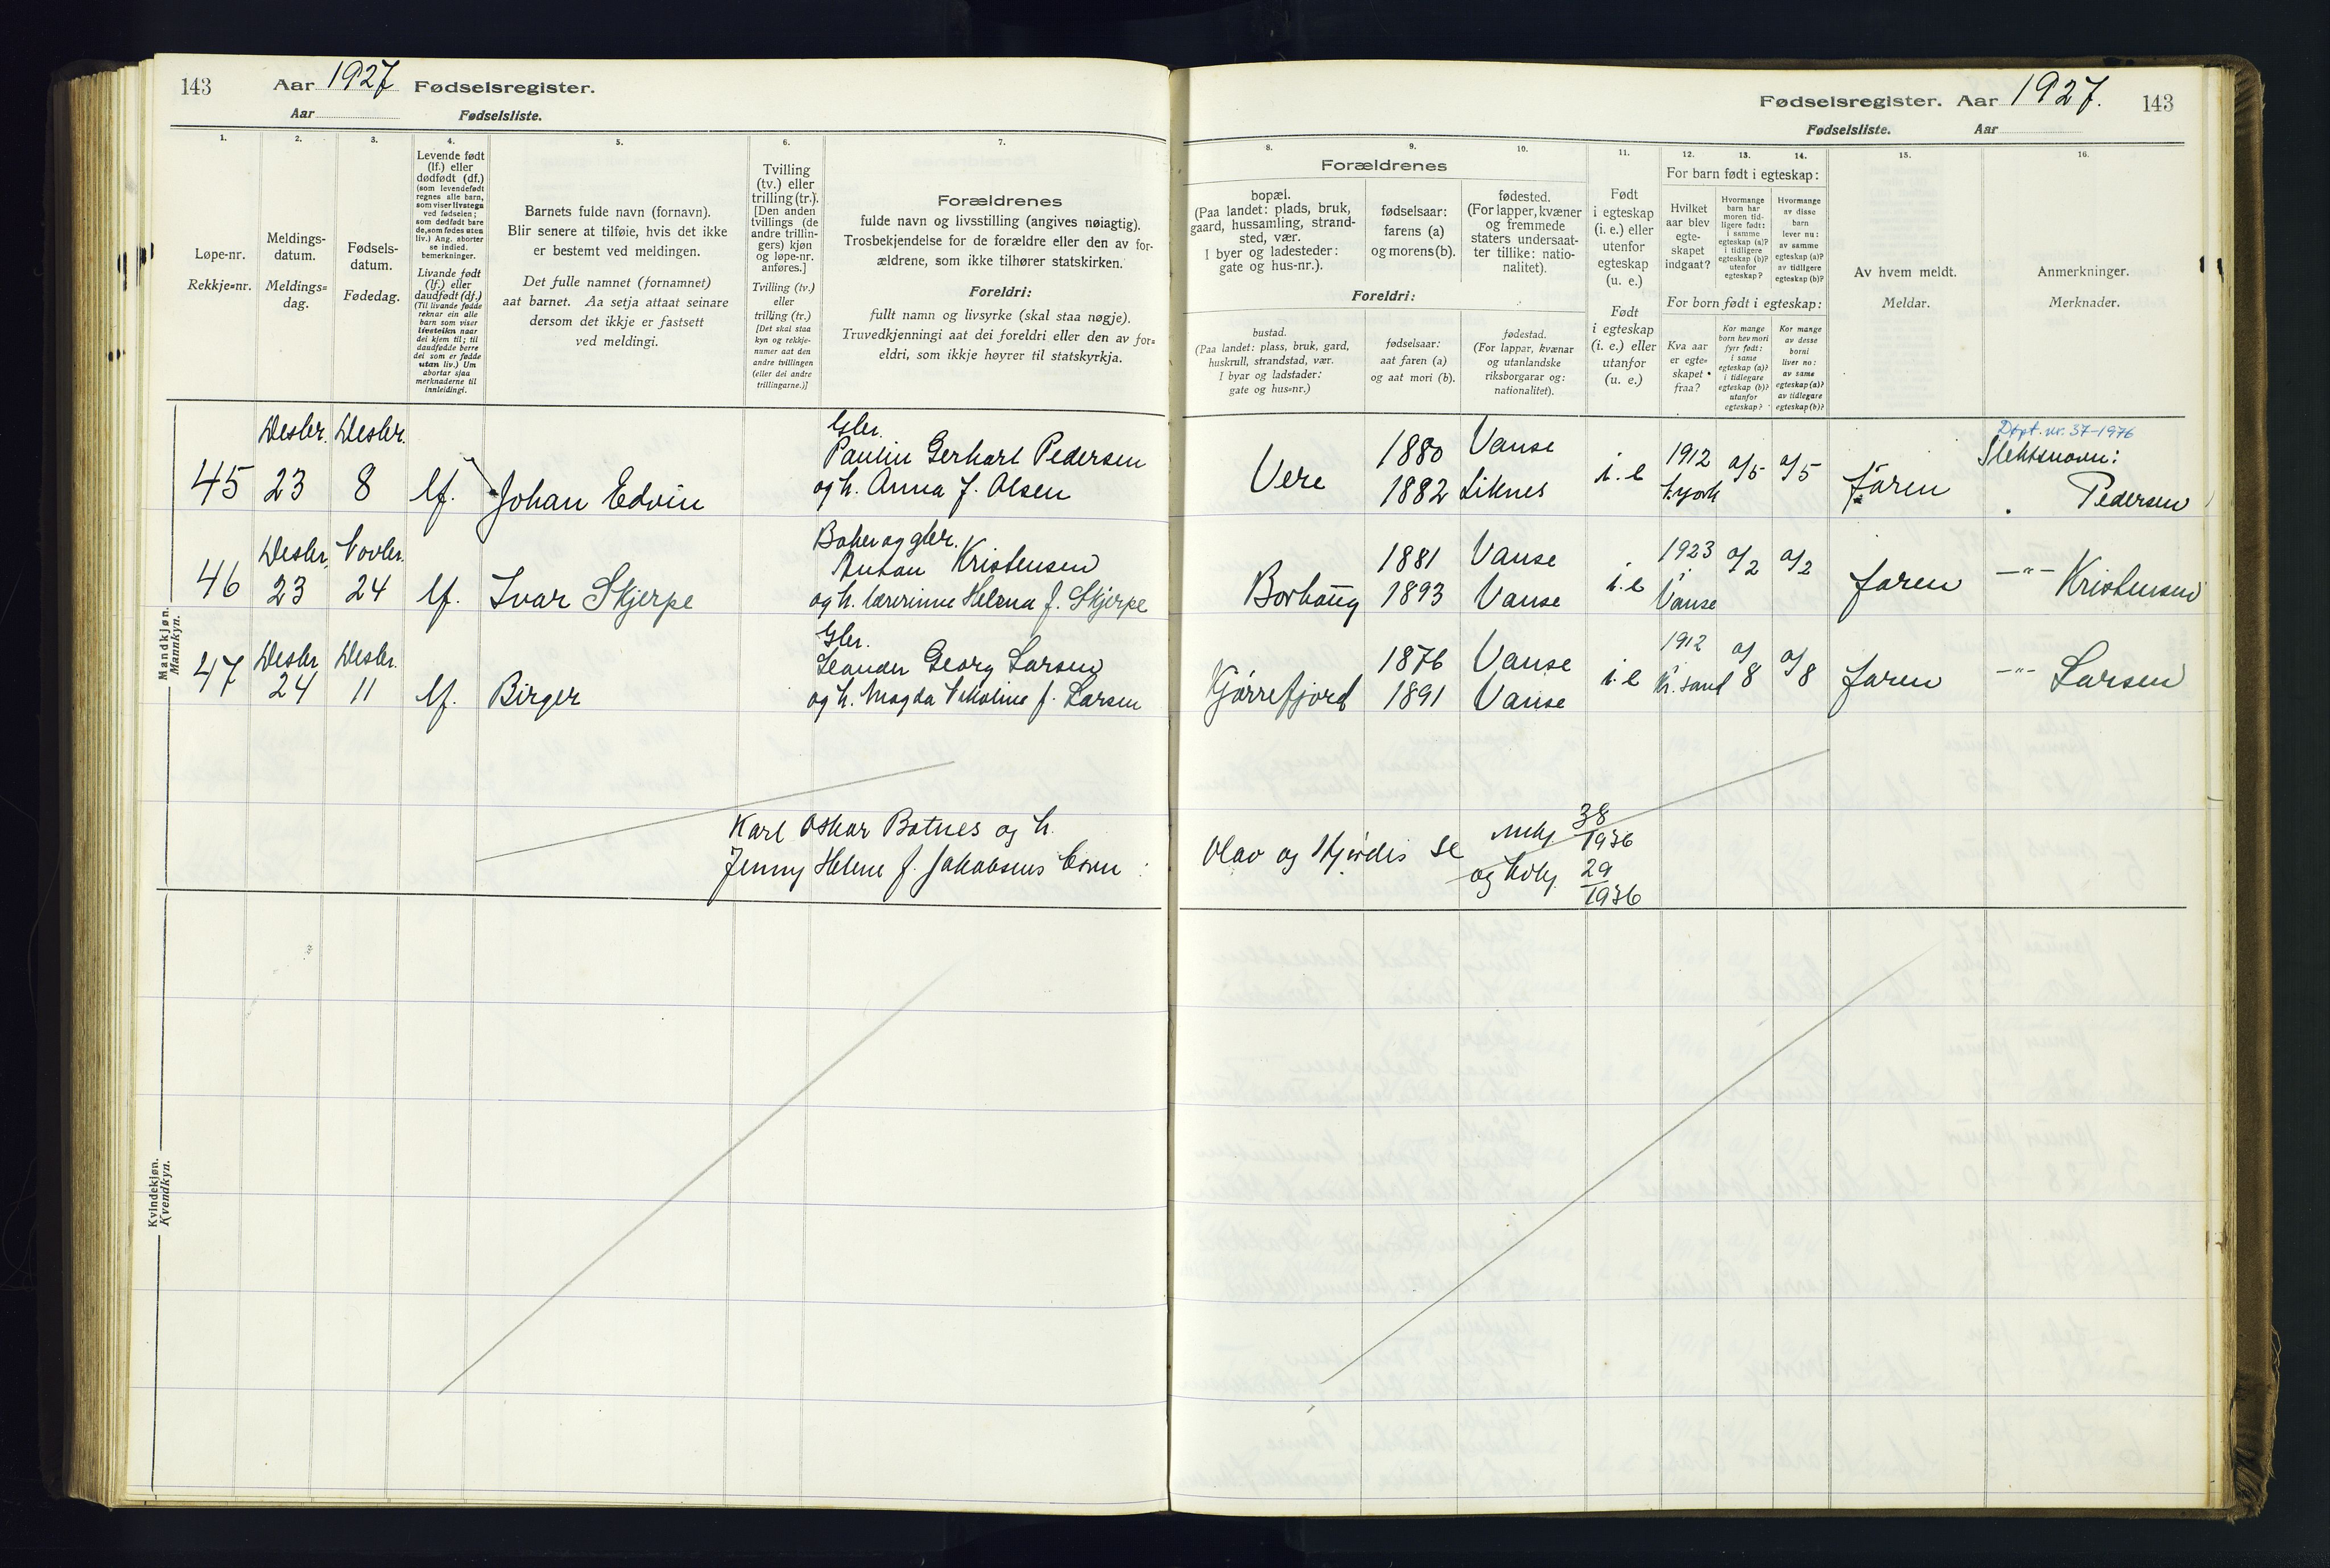 143
Aar 1927 Fødselsregister.
Aar Fødselsliste.
1.
2.
3.
4.
5.
6.
7.
Løpe-nr.
Rekkje-nr.
Meldings-
datum.
Meldings-
dag.
Fødsels-
datum.
Fødedag.
Levende født
(lf.) eller
dødfødt (df.)
(som levendefødt
regnes alle barn,
som viser livstegn
ved fødselen;
som dødfødt bare
de, som fødes uten
liv.) Ang. aborter
se indled.
bemerkninger.
Livande født
(lf.) eller
daudfødt (df.)
(Til livande fødde
reknar ein alle
barn som viser
livsteikn naar
dei kjem til; til
daudfødde berre
dei som er fødde
utan liv.) Um
abortar sjaa
merknaderne til
innleidingi.
Barnets fulde navn (fornavn).
Blir senere at tilføie, hvis det ikke
er bestemt ved meldingen.
Det fulle namnet (fornamnet)
aat barnet. Aa setja attaat seinare
dersom det ikkje er fastsett
ved meldingi.
Tvilling
(tv.) eller
trilling (tr.).
[Den anden
tvillings (de
andre trillin-
gers) kjøn
og løpe-nr.
anføres.]
Tvilling (tv.)
eller
trilling (tr.)
[Det skal staa
kyn og rekkje-
numer aat den
andre tvillingen
(eller dei andre
trillingarne.)]
Forældrenes
fulde navn og livsstilling (angives nøiagtig).
Trosbekjendelse for de forældre eller den av for-
ældrene, som ikke tilhører statskirken.
Foreldri:
fullt namn og livsyrke (skal staa nøgje).
Truvedkjenningi aat dei foreldri eller den av for-
eldri, som ikkje høyrer til statskyrkja.
Mandkjøn.
Mannkyn.
45
Desbr. 23
Desbr. 8
lf.
Johan Edvin
Gbr.
Paulin Gerhart Pedersen
og h. Anna f. Olsen
46
Desbr. 23
Novbr. 24
lf.
Ivar Skjerpe
Baker og gbr.
Anton Kristensen
og h. lærerinne Helena f. Skjerpe
47
Desbr 24
Desbr. 11
lf.
Birger
Gbr.
Leander Georg Larsen
og h. Magda Nikoline f. Larsen
Karl Oskar Botnes og h.
Jenny Helene f. Jakobsens born:
Kvindekjøn.
Kvendkyn.
Fødselsregister. Aar 1927. 143
Fødselsliste. Aar
8.
9.
10.
11.
12.
13.
14.
15.
16.
Forældrenes
bopæl.
(Paa landet: plads, bruk,
gaard, hussamling, strand-
sted, vær.
I byer og ladesteder:
gate og hus-nr.).
fødselsaar:
farens (a)
og morens (b).
fødested.
(For lapper, kvæner
og fremmede
staters undersaat-
ter tillike: natio-
nalitet).
Foreldri:
bustad.
(Paa landet: plass, bruk, gard,
huskrull, strandstad, vær.
I byar og ladstader:
gate og hus-nr.)
fødselsaar:
aat faren (a)
og aat mori (b).
fødestad.
(For lappar, kvænar
og utanlandske
riksborgarar og:
nationalitet).
Født
i egteskap
(i. e.) eller
utenfor
egteskap
(u. e.)
Født
i egteskap
(i. e.) eller
utanfor
(u. e.)
For barn født i egteskap:
Hvilket
aar blev
egte-
skapet
indgaat?
Hvormange
barn har
moren tid-
ligere født:
i samme
egteskap (a)?
i tidligere
egteskap (b)?
utenfor
egteskap?
Hvormange
av disse
barn
lever nu:
av samme
egteskap (a)?
av tidligere
egteskap (b)?
For born født i egteskap:
Kva aar
er egte-
skapet
fraa?
Kor mange
born hev mori
fyrr født:
i same
egteskap (a)?
i tidlegare
egteskap (b)?
utanfor
egteskap?
Kor mange
av desse
borni
liver no:
av same
egteskap (a)?
av tidlegare
egteskap (b)?
Av hvem meldt.
Meldar.
Anmerkninger.
Merknader.
Vere
1880
1882
Vanse
Liknes
i. e
1912
N.york
a/5
a/5
Faren
Døpt. nr. 37-1976
Slektsnavn:
Pedersen
Borhaug
1881
1893
Vanse
Vanse
i. e
1923
Vanse
a/2
a/2
Faren
—"— Kristensen
Gjørrefjord
1876
1891
Vanse
Vanse
i. e
1912
Kr. sand
a/8
a/8
Faren
—"— Larsen
Olav og Hjørdis se mkj 38/1936
og kvkj. 29/1936